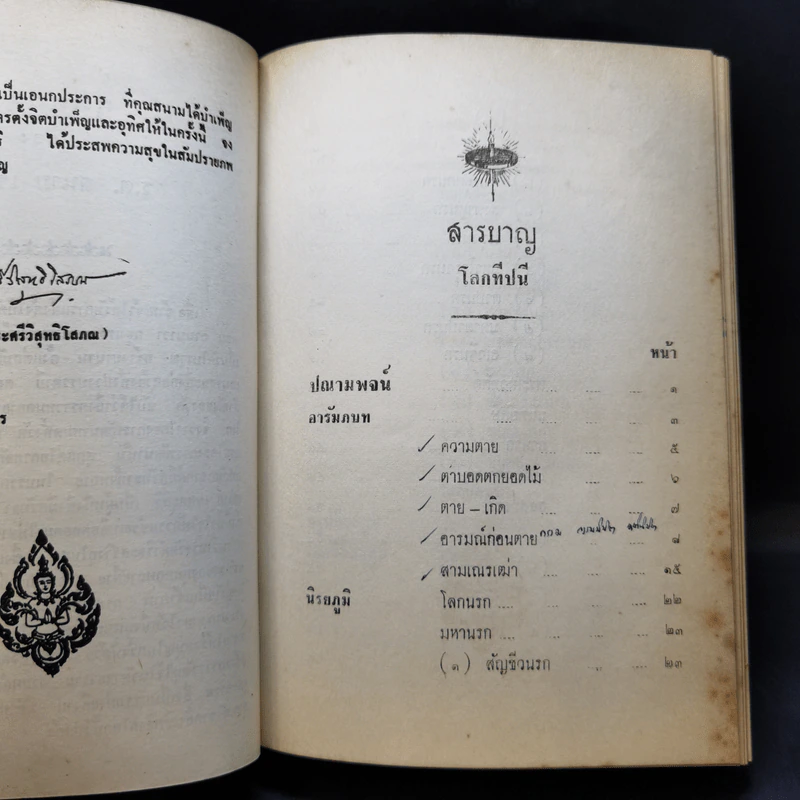 เป็นเอนกประการ ที่คุณสนามได้บำเพ็ญ
รตั้งจิตบำเพ็ญและอุทิศให้ในครั้งนี้ จง
ได้ประสพความสุขในสัมปรายภพ
ญ
ะศรีวิสุทธิโสภณ)
ร
สารบาญ
โลกทีปนี
หน้า
ปณามพจน์ .... .... .... .... ๑
อารัมภบท .... .... .... ๓
ความตาย .... .... .... ๕
ตาบอดตกยอดไม้ .... .... ๖
ตาย – เกิด .... .... .... ๗
อารมณ์ก่อนตาย ๘
สามเณรเฒ่า .... .... .... ๑๕
นิรยภูมิ โลกนรก .... .... .... .... ๒๒
มหานรก .... .... .... .... ๒๓
(๑) สัญชีวนรก .... .... ๒๓